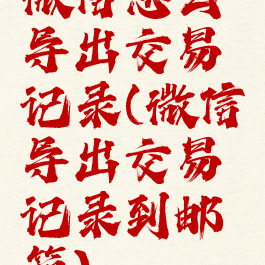 微信怎么
导出交易
记录(微信
导出交易
记录到邮
箱)